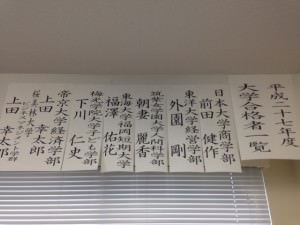 平成二十七年度
大学合格者一覧
日本大学商学部
前田 健作
東洋大学経営学部
外園 剛
筑紫女学園大学人間科学部
朝妻 麗香
東海大学福岡短期大学
福澤 佑花
梅光学院大学子ども学部
下川 仁史
帝京大学経済学部
上田 幸太郎
桜美林大学
ビジネスマネジメント学群
上田 幸太郎